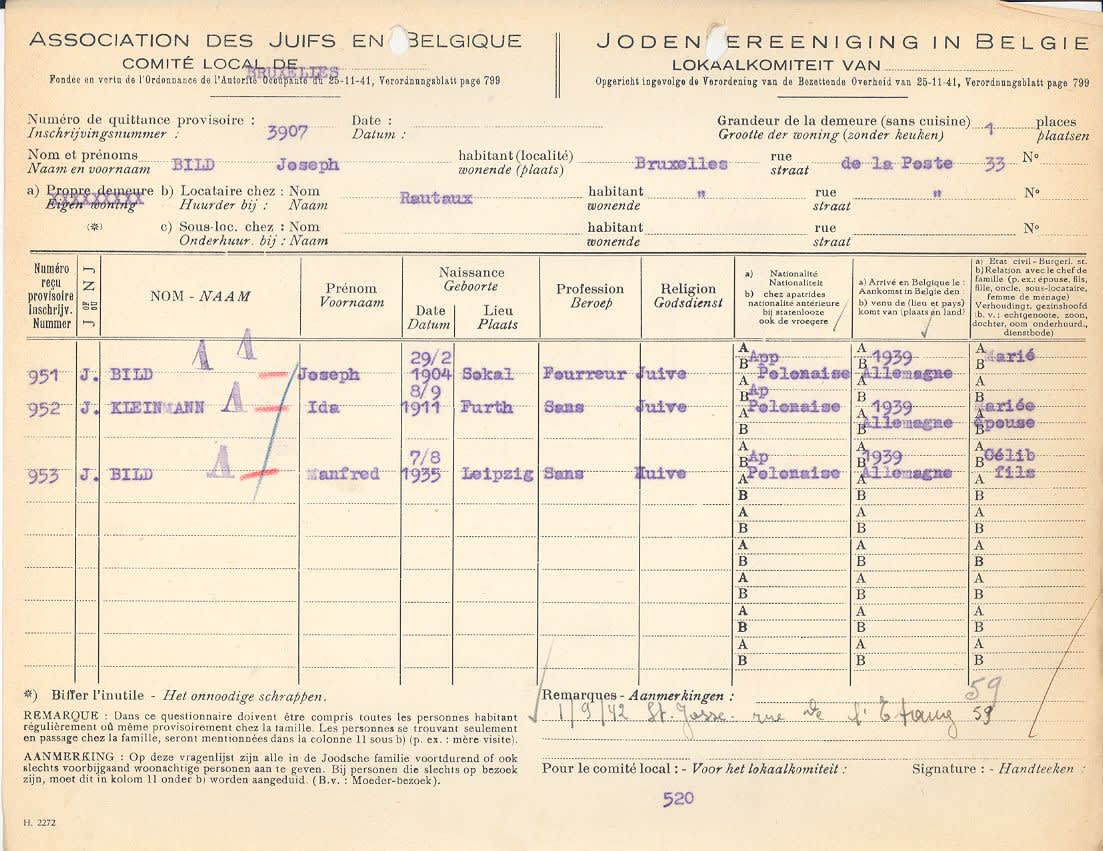 ASSOCIATION DES JUIFS EN BELGIQUE
COMITÉ LOCAL DE BRUXELLES
Fondée en vertu de l'Ordonnance de l'Autorité Occupante du 25-11-41, Verordnungsblatt page 799
JODENVEREENIGING IN BELGIE
LOKAALKOMITEIT VAN
Opgericht ingevolge de Verordening van de Bezettende Overheid van 25-11-41, Verordnungsblatt page 799
Numéro de quittance provisoire : Date : Grandeur de la demeure (sans cuisine) 1 places
Inschrijvingsnummer : 3907 Datum : Grootte der woning (zonder keuken) plaatsen
Nom et prénoms BILD Joseph habitant (localité) Bruxelles rue de la Poste 33 N°
Naam en voornaam wonende (plaats) straat
a) Propre demeure b) Locataire chez : Nom Rautaux habitant " rue " N°
Eigen woning Huurder bij : Naam wonende straat
(*) c) Sous-loc. chez : Nom habitant rue N°
Onderhuur. bij : Naam wonende straat
Numéro reçu provisoire Inschrijv. Nummer
J OF OU N J
NOM - NAAM
Prénom Voornaam
Naissance Geboorte
Date Datum
Lieu Plaats
Profession Beroep
Religion Godsdienst
a) Nationalité Nationaliteit
b) chez apatrides nationalité antérieure bij statenlooze ook de vroegere
a) Arrivé en Belgique le : Aankomst in Belgie den :
b) venu de (lieu et pays) komt van (plaats en land)
a) Etat civil - Burgerl. st.
b) Relation avec le chef de famille (p. ex.; épouse, fils, fille, oncle, sous-locataire, femme de ménage) Verhoudingt. gezinshoofd (b. v. : echtgenoote, zoon, dochter, oom onderhuurd., dienstbode)
951 J. BILD Joseph 29/2 1904 Sokal Fourreur Juive App Polonaise 1939 Allemagne Marié
952 J. KLEINMANN Ida 8/9 1911 Furth Sans Juive Ap Polonaise 1939 Allemagne Mariée épouse
953 J. BILD Manfred 7/8 1935 Leipzig Sans Huive Ap Polonaise 1939 Allemagne Célib fils
*) Biffer l'inutile - Het onnoodige schrappen.
REMARQUE : Dans ce questionnaire doivent être compris toutes les personnes habitant
régulièrement où même provisoirement chez la famille. Les personnes se trouvant seulement
en passage chez la famille, seront mentionnées dans la colonne 11 sous b) (p. ex. : mère-visite).
AANMERKING : Op deze vragenlijst zijn alle in de Joodsche familie voortdurend of ook
slechts voorbijgaand woonachtige personen aan te geven. Bij personen die slechts op bezoek
zijn, moet dit in kolom 11 onder b) worden aangeduid. (B.v. : Moeder-bezoek).
Remarques - Aanmerkingen :
59
1/9/42 St. Josse. rue de l'Etang 59
Pour le comité local : - Voor het lokaalkomiteit : Signature : - Handteeken :
520
H. 2272